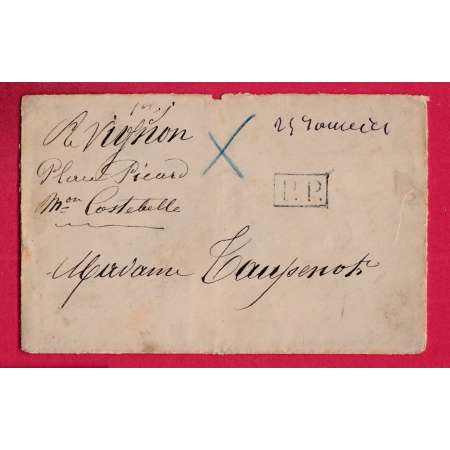 R Vignon
25 Janvier
Place Picard
P.P.
Mon Costebelle
Madame Taupenot